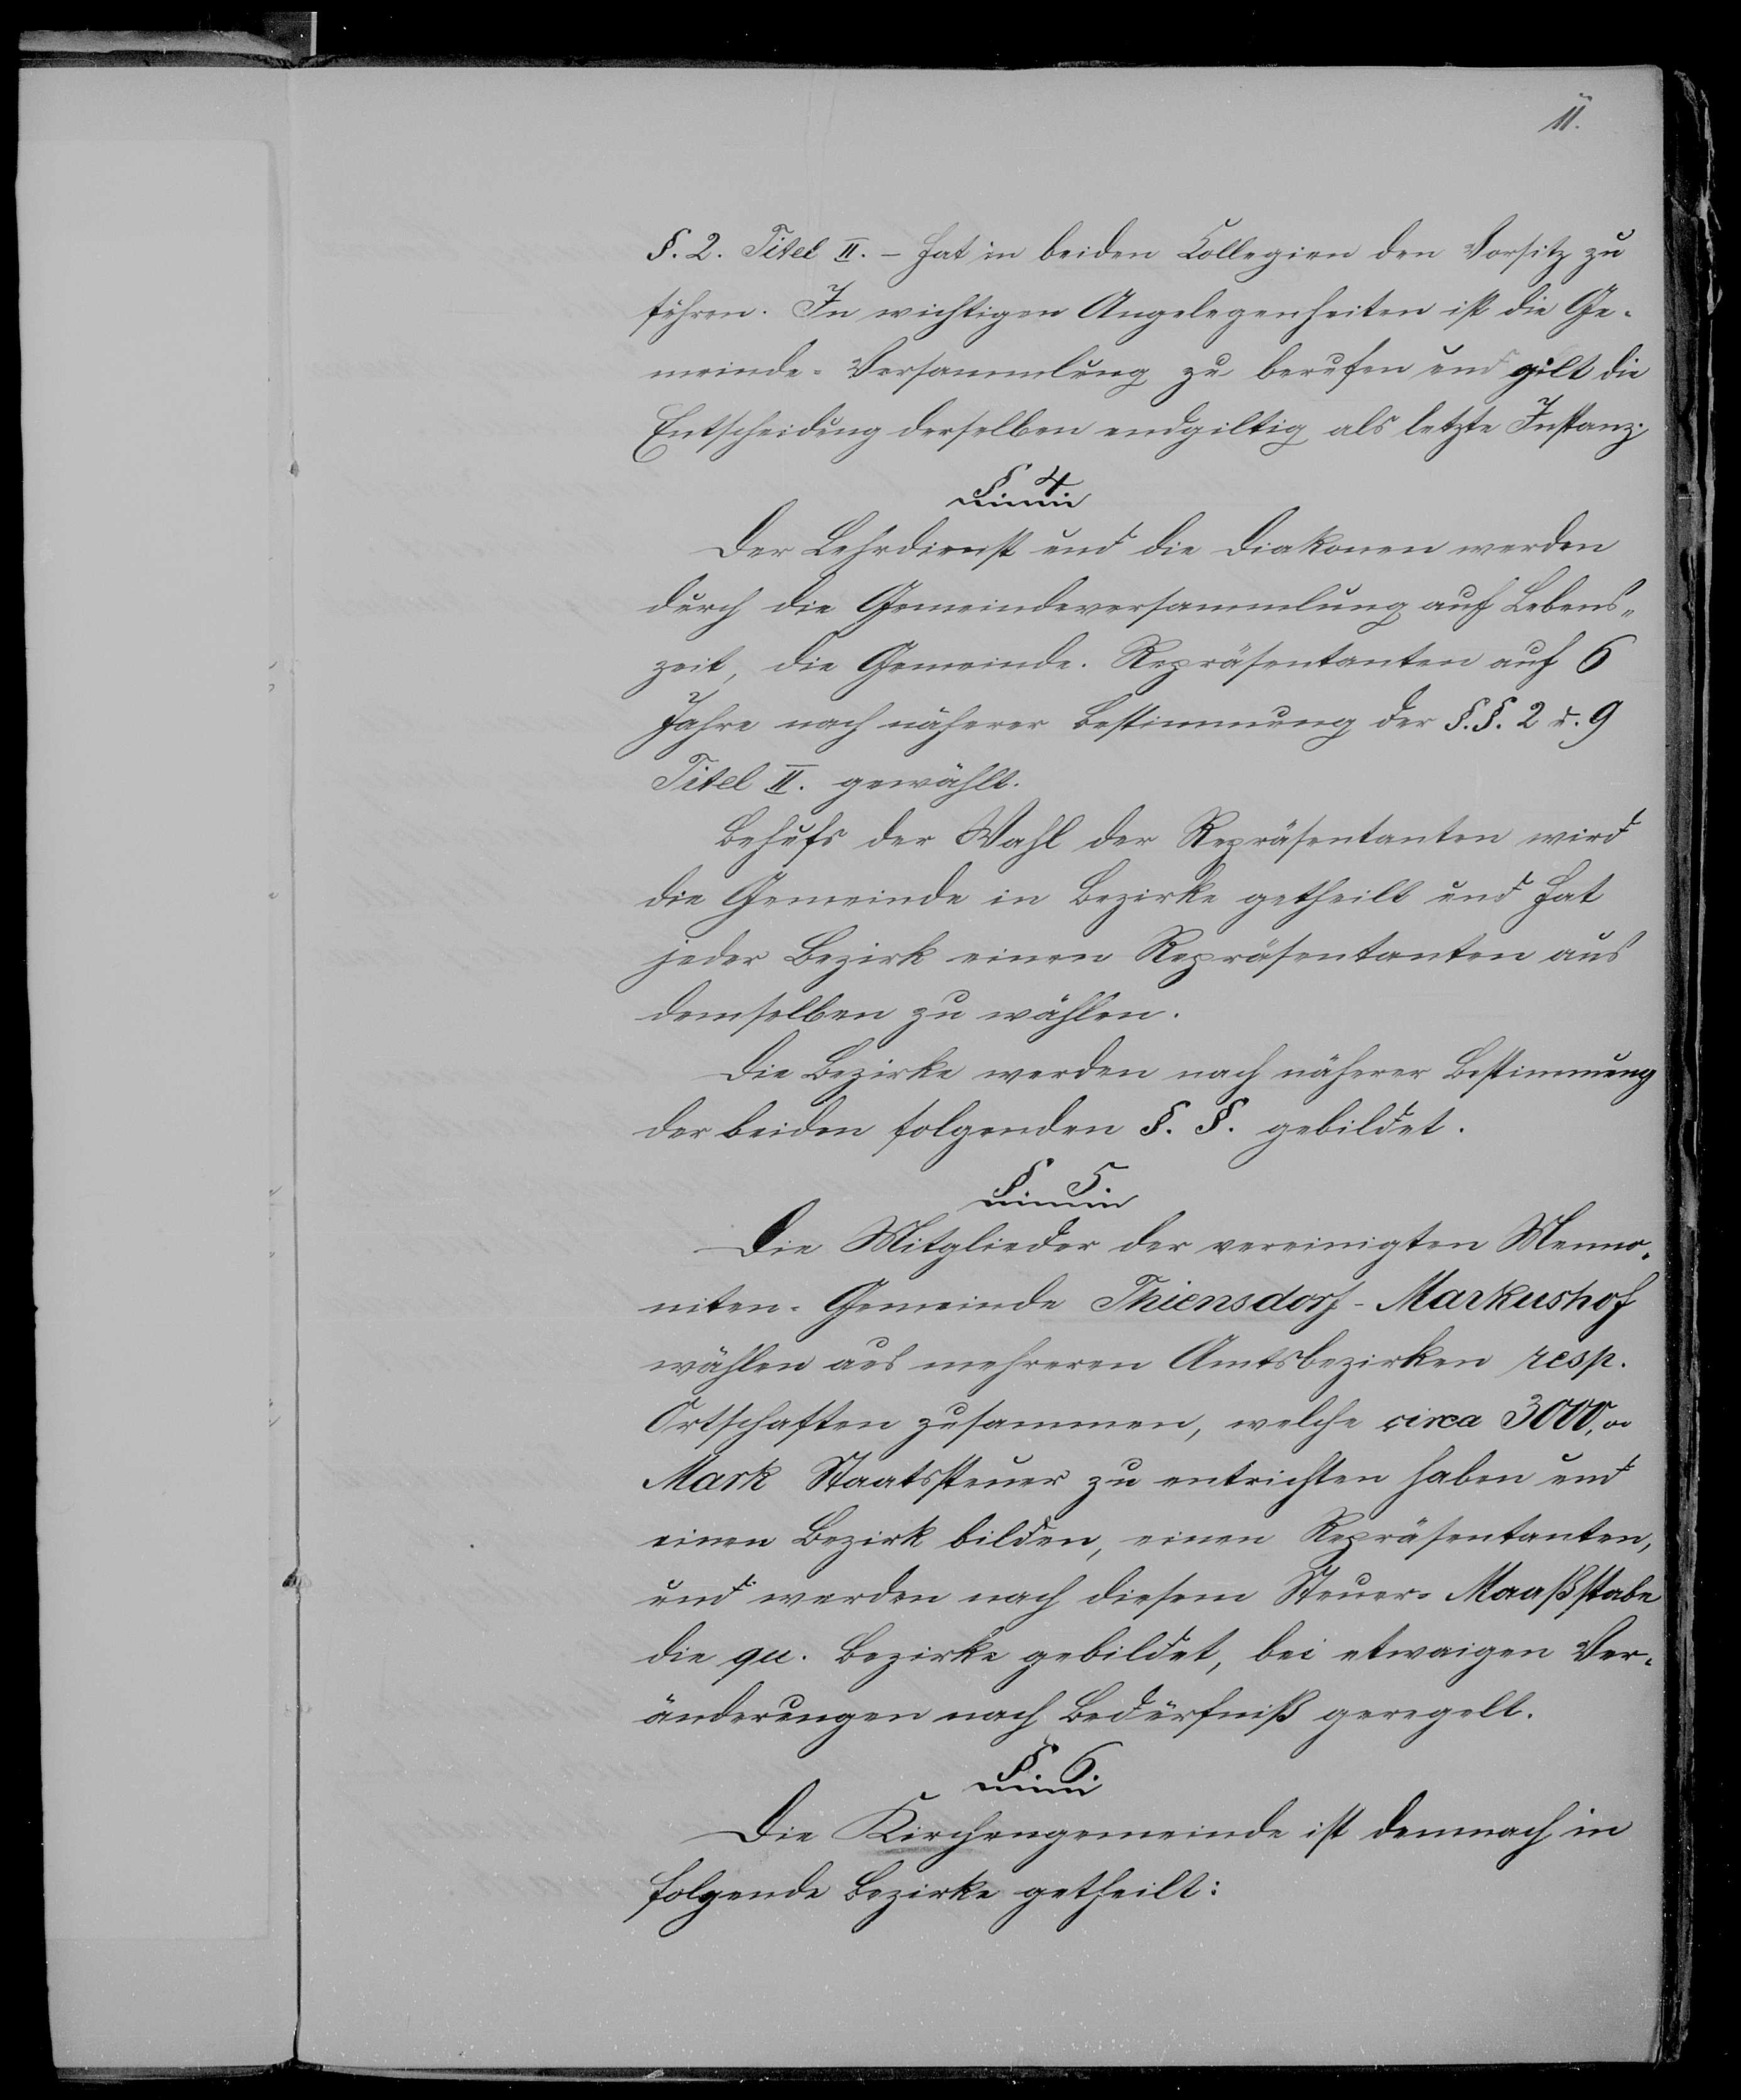 11.
§. 2. Titel II. – hat in beiden Collegien den Vorsitz zu
führen. In wichtigen Angelegenheiten ist die Ge-
meinde-Versammlung zu berufen und gilt die
Entscheidung derselben endgiltig als letzte Instanz.
§ 4
Der Lehrdienst und die Diakonen werden
durch die Gemeindeversammlung auf Lebens-
zeit, die Gemeinde-Repräsentanten auf 6
Jahre nach näherer Bestimmung der §.§. 2 u. 9
Titel II. gewählt.
Behufs der Wahl der Repräsentanten wird
die Gemeinde in Bezirke getheilt und hat
jeder Bezirk einen Repräsentanten aus
demselben zu wählen.
Die Bezirke werden nach näherer Bestimmung
der beiden folgenden §. §. gebildet.
§ 5.
Die Mitglieder der vereinigten Menno-
niten-Gemeinde Thiensdorf-Markushof
wählen aus mehreren Amtsbezirken resp.
Ortschaften zusammen, welche circa 3000,00
Mark Staatssteuer zu entrichten haben und
einen Bezirk bilden, einen Repräsentanten,
und werden nach diesem Steuer-Maaßstabe
die qu. Bezirke gebildet, bei etwaigen Ver-
änderungen nach Bedürfniß geregelt.
§ 6.
Die Kirchengemeinde ist demnach in
folgende Bezirke getheilt: